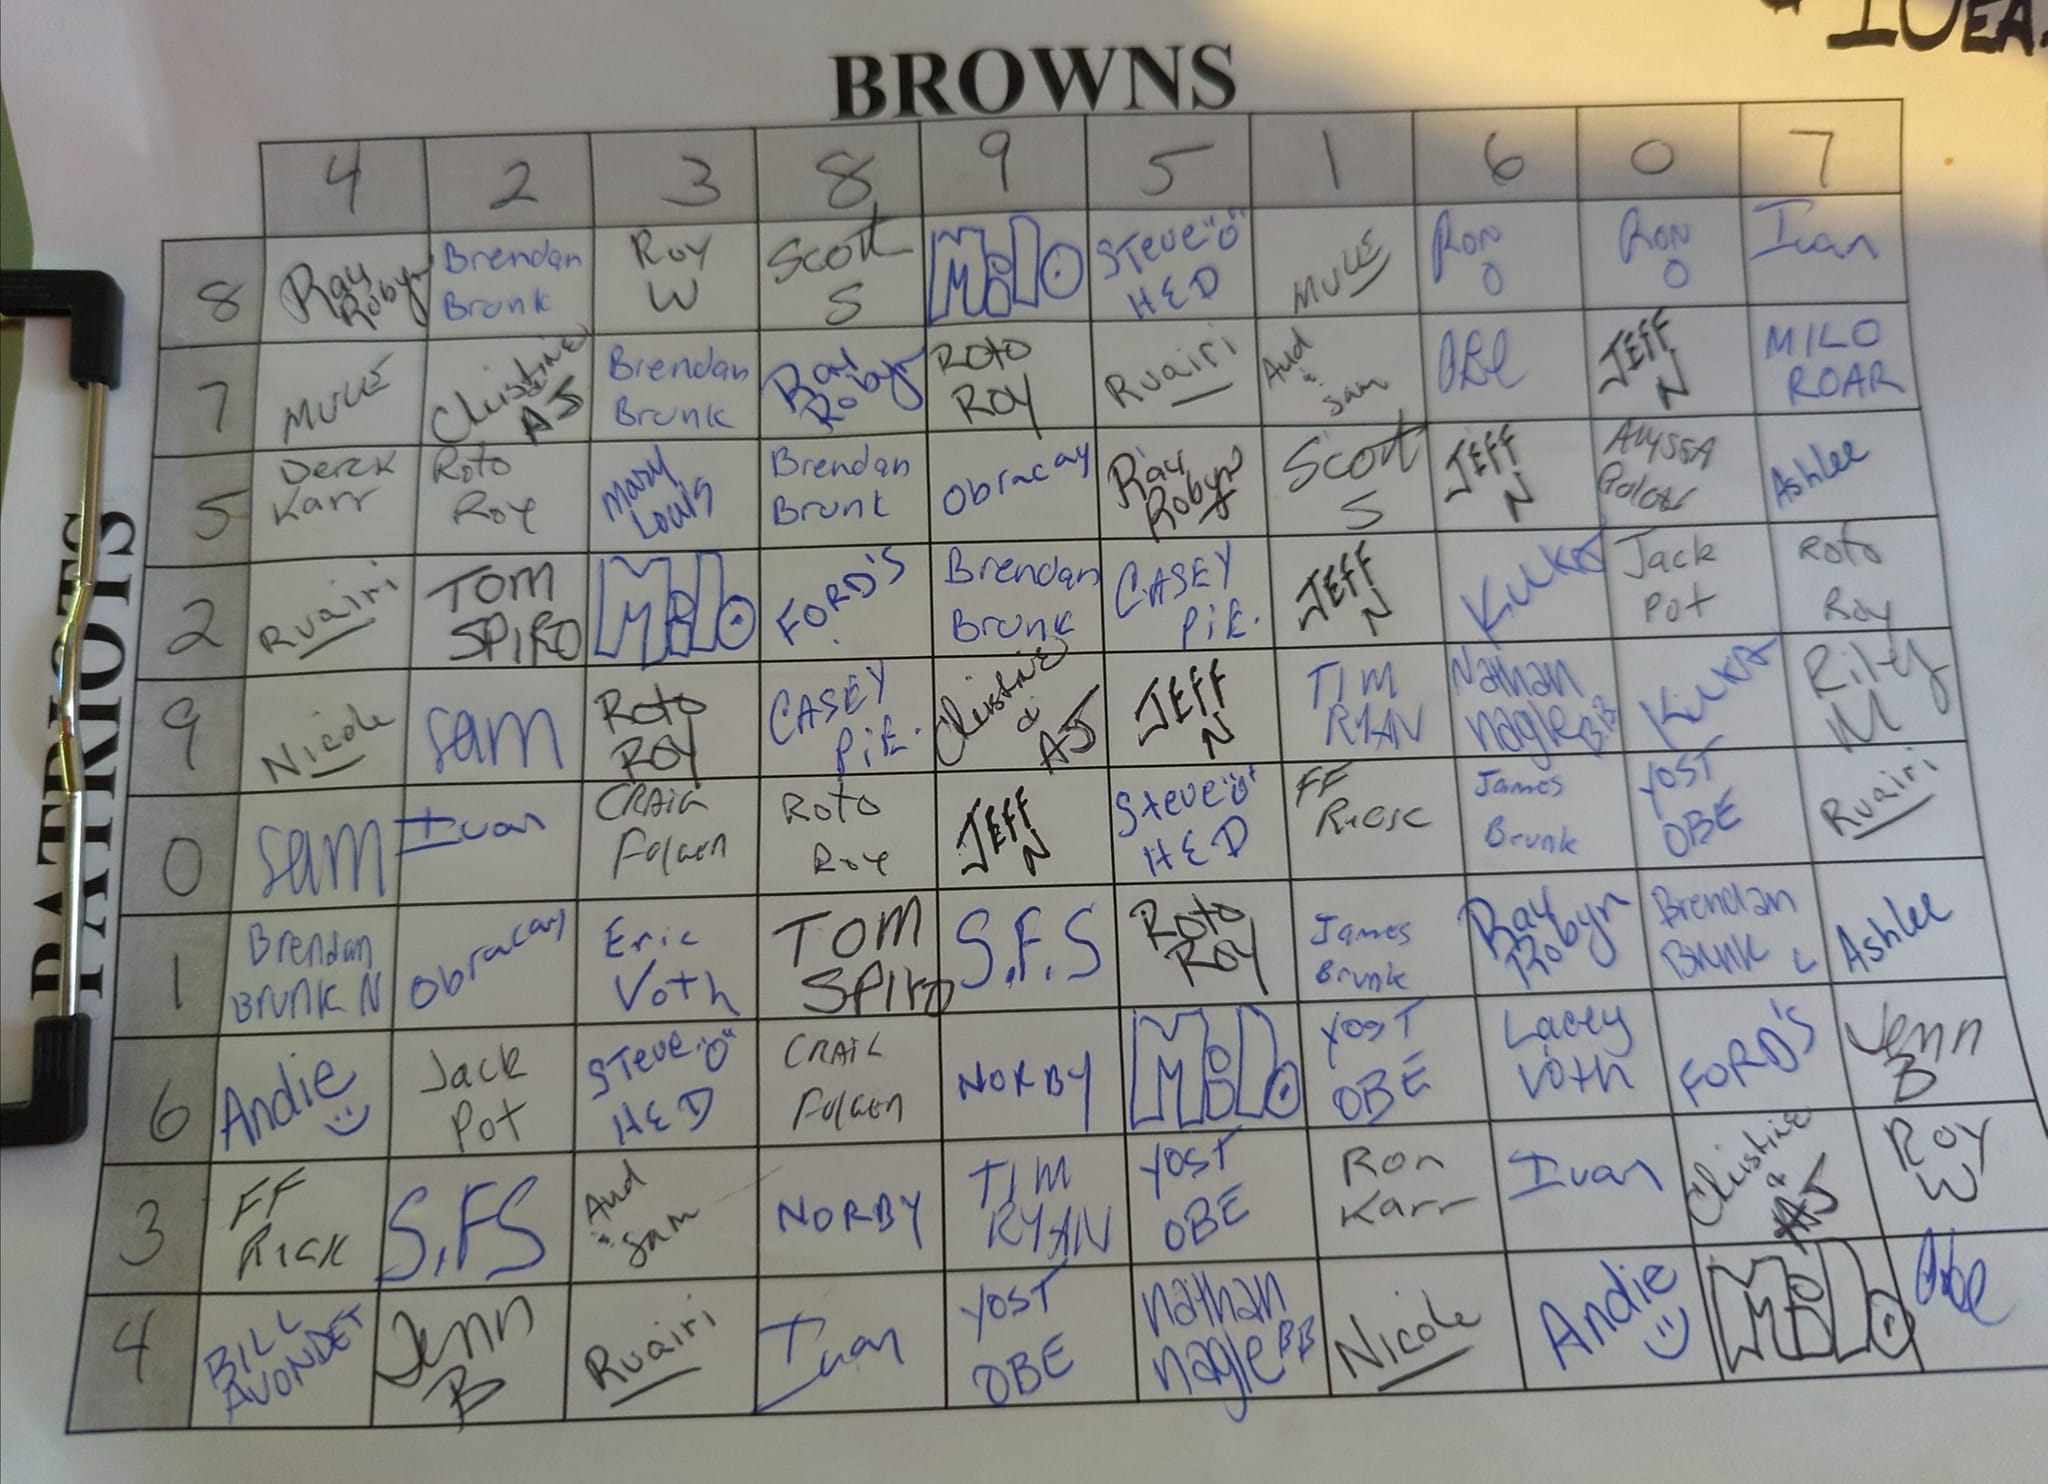 BROWNS
PATRIOTS
4 2 3 8 9 5 1 6 0 7
8 Ray Robyn Brendan Brunk Roy W Scott S Milo Steve "O" HED MULE Ron O Ron O Ivan
7 MULE Christine AJ Brendan Brunk Ray Robyn Roto Roy Ruairi Aud & Sam OBE JEFF N MILO ROAR
5 Derek Karr Roto Roy Mary Louis Brendan Brunk Obracay Ray Robyn Scott S JEFF N Alyssa Ashlee
2 Ruairi TOM SPIRO Milo FORD'S Brendan Brunk CASEY PiE. JEFF N Jack Pot Roto Roy
9 Nicole Sam Roto Roy CASEY PiE. Christine & AJ JEFF N TIM RYAN Nathan nagle BB Riley M
0 Sam Ivan CRAIG Roto Roy JEFF N Steve "O" HED FF James Brunk YOST OBE Ruairi
1 Brendan BRUNK N Obracay Eric Voth TOM SPIRO S.F.S Roto Roy James Brunk Ray Robyn Brendan Brunk Ashlee
6 Andie Jack Pot Steve "O" HED CRAIG NORBY Milo YOST OBE Lacey Voth FORD'S Jenn B
3 FF RICK S.FS Aud & Sam NORBY TIM RYAN YOST OBE Ron Karr Ivan Christine & AJ Roy W
4 BILL AVONDET Jenn B Ruairi Ivan YOST OBE nathan nagle BB Nicole Andie Milo Obe